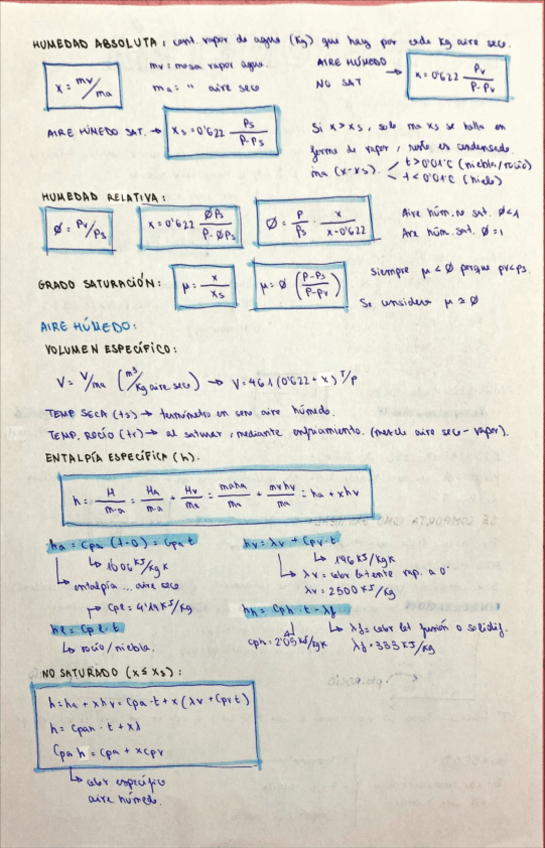 HUMEDAD ABSOLUTA: cant. vapor de agua (Kg) que hay por cada Kg aire seco.
x = mv/ma
mv: masa vapor agua.
ma = " aire seco
AIRE HÚMEDO NO SAT → x = 0'622 Pv/(P-Pv)
AIRE HÚMEDO SAT. → xs = 0'622 Ps/(P-Ps)
Si x > xs, solo ma xs se halla en
forma de vapor, resto es condensado.
ma (x-xs). t > 0'01°C (niebla/rocío)
t < 0'01°C (hielo)
HUMEDAD RELATIVA:
Ø = Pv/Ps
x = 0'622 ØPs/(P-ØPs)
Ø = P/Ps · x/(x-0'622)
Aire húm. no sat. Ø<1
Aire húm. sat. Ø=1
GRADO SATURACIÓN:
μ = x/xs
μ = Ø ((P-Ps)/(P-Pv))
Siempre μ < Ø porque pv<ps.
Se considera μ ≃ Ø
AIRE HÚMEDO:
VOLUMEN ESPECÍFICO:
V = V/ma (m³/Kg aire seco) → V = 461 (0'622 + x) T/P
TEMP SECA (ts) → termómetro en seno aire húmedo.
TEMP. ROCÍO (tr) → al saturar, mediante enfriamiento. (mezcla aire seco - vapor).
ENTALPÍA ESPECÍFICA (h).
h = H/ma = Ha/ma + Hv/ma = maha/ma + mvhv/ma = ha + xhv
ha = cpa (t-0) = cpa t
→ 1'006 KJ/KgK
→ entalpía ... aire seco
hv = λv + cpv · t
→ 1'96 KJ/KgK
→ λv = calor latente vap. a 0°
λv = 2500 KJ/Kg
→ cpl = 4'19 KJ/Kg
hl = cpl · t
→ rocío/niebla.
hh = cph · t - λf
cph = 2'05 KJ/KgK
→ λf = calor lat fusión o solidif.
λf = 333 KJ/Kg
NO SATURADO (x ≤ xs):
h = ha + xhv = cpa · t + x (λv + cpv t)
h = cpah · t + xλ
Cpa h = cpa + xcpv
→ calor específico
aire húmedo.